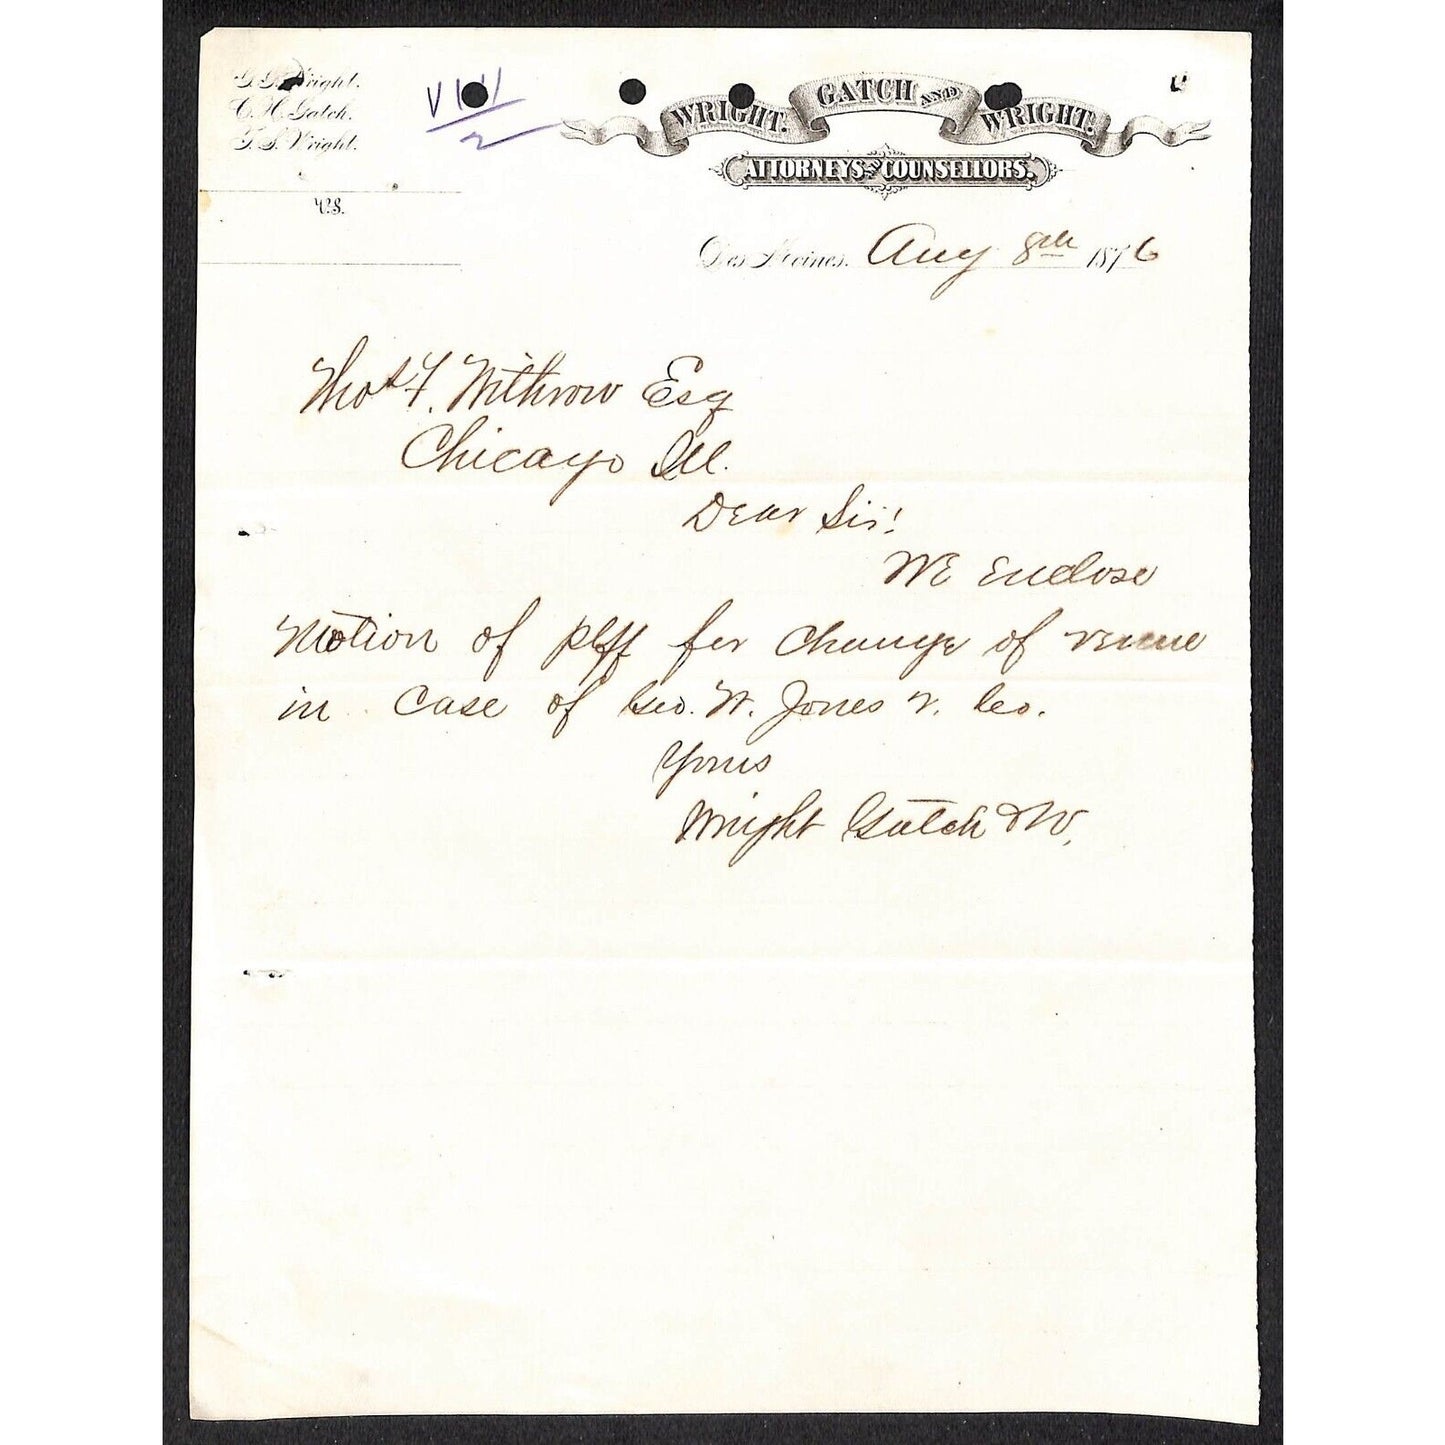 G. G. Wright.
C. H. Gatch.
T. S. Wright.
VIII
2
WRIGHT. GATCH AND WRIGHT.
ATTORNEYS AND COUNSELLORS.
vs.
Des Moines. Aug 8th 1876
Thos F. Withrow Esq
Chicago Ill.
Dear Sir!
We enclose
Motion of plff for change of venue
in case of Geo. W. Jones v. Co.
Yours
Wright Gatch & W.